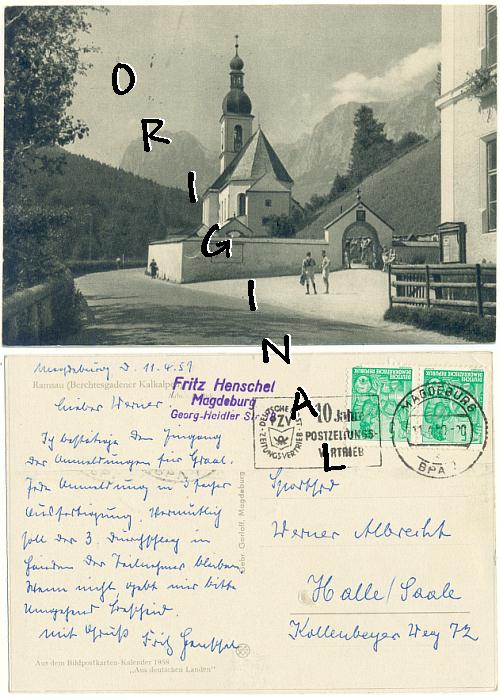 ORIGINAL
Magdeburg, d. 11.4.59
Ramsau (Berchtesgadener Kalkalpe
Fritz Henschel
Magdeburg
Georg-Heidler Str.
Lieber Werner
Ich bestätige den Eingang
der Anmeldungen für Graal.
Jede Anmeldung in 3facher
Ausfertigung. Vermutlich
soll der 3. Durchschlag in
Händen der Teilnehmer bleiben.
Wenn nicht, gebt mir bitte
umgehend Bescheid.
Mit Gruß Fritz Henschel
Aus dem Bildpostkarten-Kalender 1958
„Aus deutschen Landen“
Gebr. Garloff, Magdeburg
DEUTSCHER
PZV
ZEITUNGSVERTRIEB
10 Jahre
POSTZEITUNGS-
VERTRIEB
DEUTSCHE DEMOKRATISCHE REPUBLIK
DEUTSCHE DEMOKRATISCHE REPUBLIK
MAGDEBURG
BPA
Sportfrd
Werner Albrecht
Halle/Saale
Kollenbeyer Weg 72